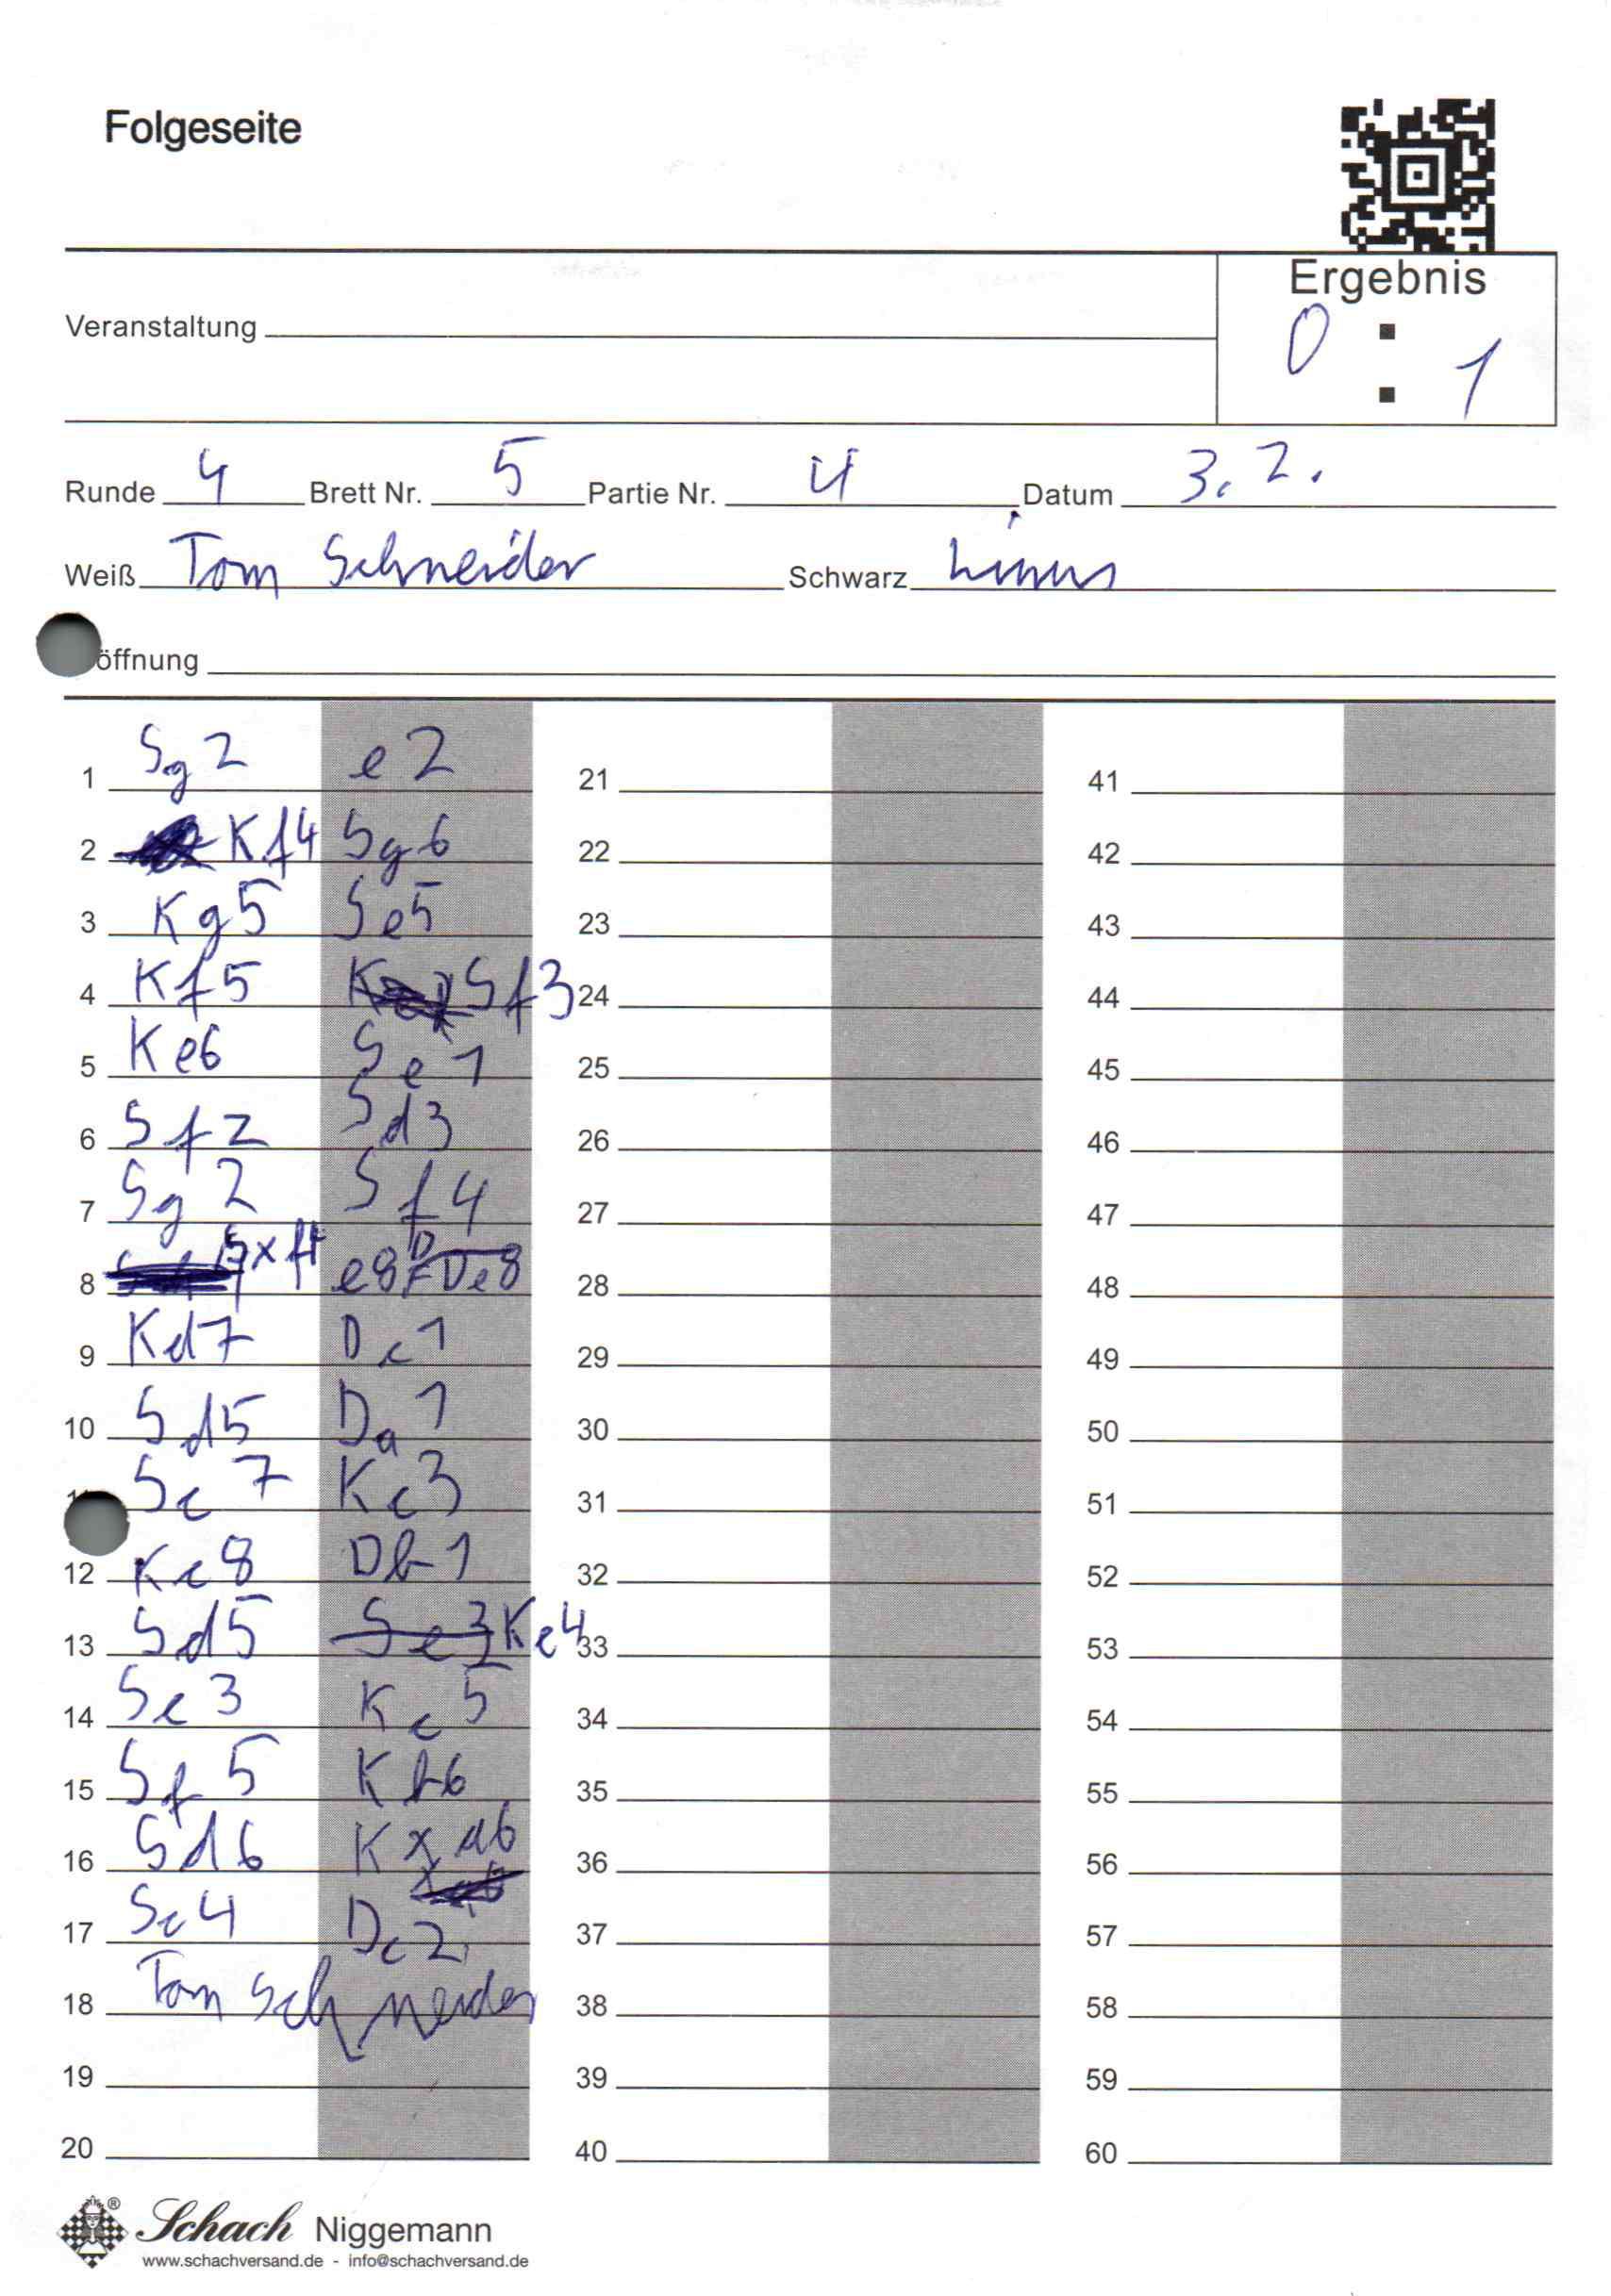 Folgeseite
Ergebnis
Veranstaltung
0 : 1
Runde 4 Brett Nr. 5 Partie Nr. 4 Datum 3.2.
Weiß Tom Schneider Schwarz Linus
öffnung
1 Sg2 e2 21 41
2 Kf4 Sg6 22 42
3 Kg5 Se5 23 43
4 Kf5 K Sf3 24 44
5 Ke6 Se1 25 45
6 Sf2 Sd3 26 46
7 Sg2 Sf4 27 47
8 Sxf4 e8=D De8 28 48
9 Kd7 Dc1 29 49
10 Sd5 Da1 30 50
Sc7 Kc3 31 51
12 Kc8 Db1 32 52
13 Sd5 Se3 Ke4 33 53
14 Se3 Kc5 34 54
15 Sf5 Kb6 35 55
16 Sd6 Kxa6 36 56
17 Sc4 Dc2 37 57
18 Tom Schneider 38 58
19 39 59
20 40 60
Schach Niggemann
www.schachversand.de - info@schachversand.de